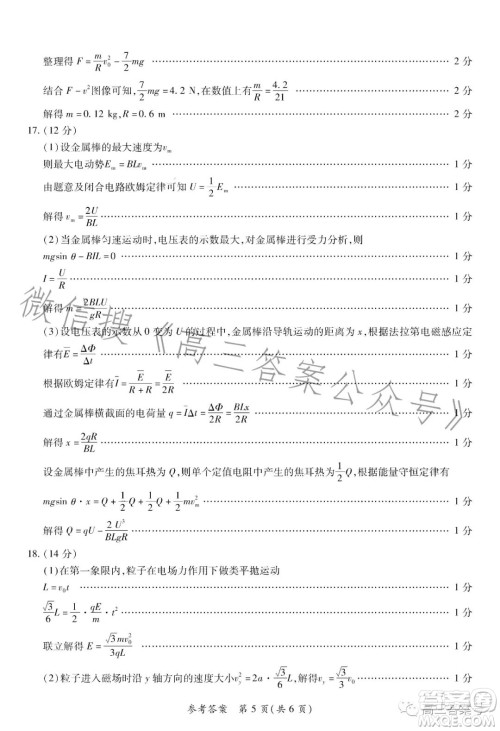 整理得 F=m/R v₀²-7/2 mg ………… 2 分
结合 F-v²图像可知,7/2 mg=4.2 N,在数值上有 m/R=4.2/21 ………… 2 分
解得 m=0.12 kg,R=0.6 m ………… 2 分
17. (12 分)
(1)设金属棒的最大速度为vₘ
则最大电动势Eₘ=BLvₘ ………… 1 分
由题意及闭合电路欧姆定律可知 U=1/2 Eₘ ………… 1 分
解得 vₘ=2U/BL ………… 1 分
(2)当金属棒匀速运动时,电压表的示数最大,对金属棒进行受力分析,则
mgsin θ-BIL=0 ………… 1 分
I=U/R ………… 1 分
解得 m=2BLU/gR ………… 1 分
(3)设电压表的示数从 0 变为 U 的过程中,金属棒沿导轨运动的距离为 x,根据法拉第电磁感应定
律有 E̅=ΔΦ/Δt ………… 1 分
根据欧姆定律有 I̅=E̅/(R+R)=E̅/2R ………… 1 分
通过金属棒横截面的电荷量 q=I̅Δt=ΔΦ/2R=BLx/2R ………… 1 分
解得 x=2qR/BL ………… 1 分
设金属棒中产生的焦耳热为 Q,则单个定值电阻中产生的焦耳热为1/2 Q,根据能量守恒定律有
mgsin θ·x=Q+1/2 Q+1/2 Q+1/2 mvₘ² ………… 1 分
解得 Q=qU-2U³/BLgR ………… 1 分
18. (14 分)
(1)在第一象限内,粒子在电场力作用下做类平抛运动
L=v₀t ………… 1 分
√3/6 L=1/2·qE/m·t² ………… 1 分
联立解得 E=√3mv₀²/3qL ………… 1 分
(2)粒子进入磁场时沿 y 轴方向的速度大小v_y²=2a·√3/6 L ………… 1 分
参考答案 第 5 页(共 6 页)
微信搜《高三答案公众号》
高三答案